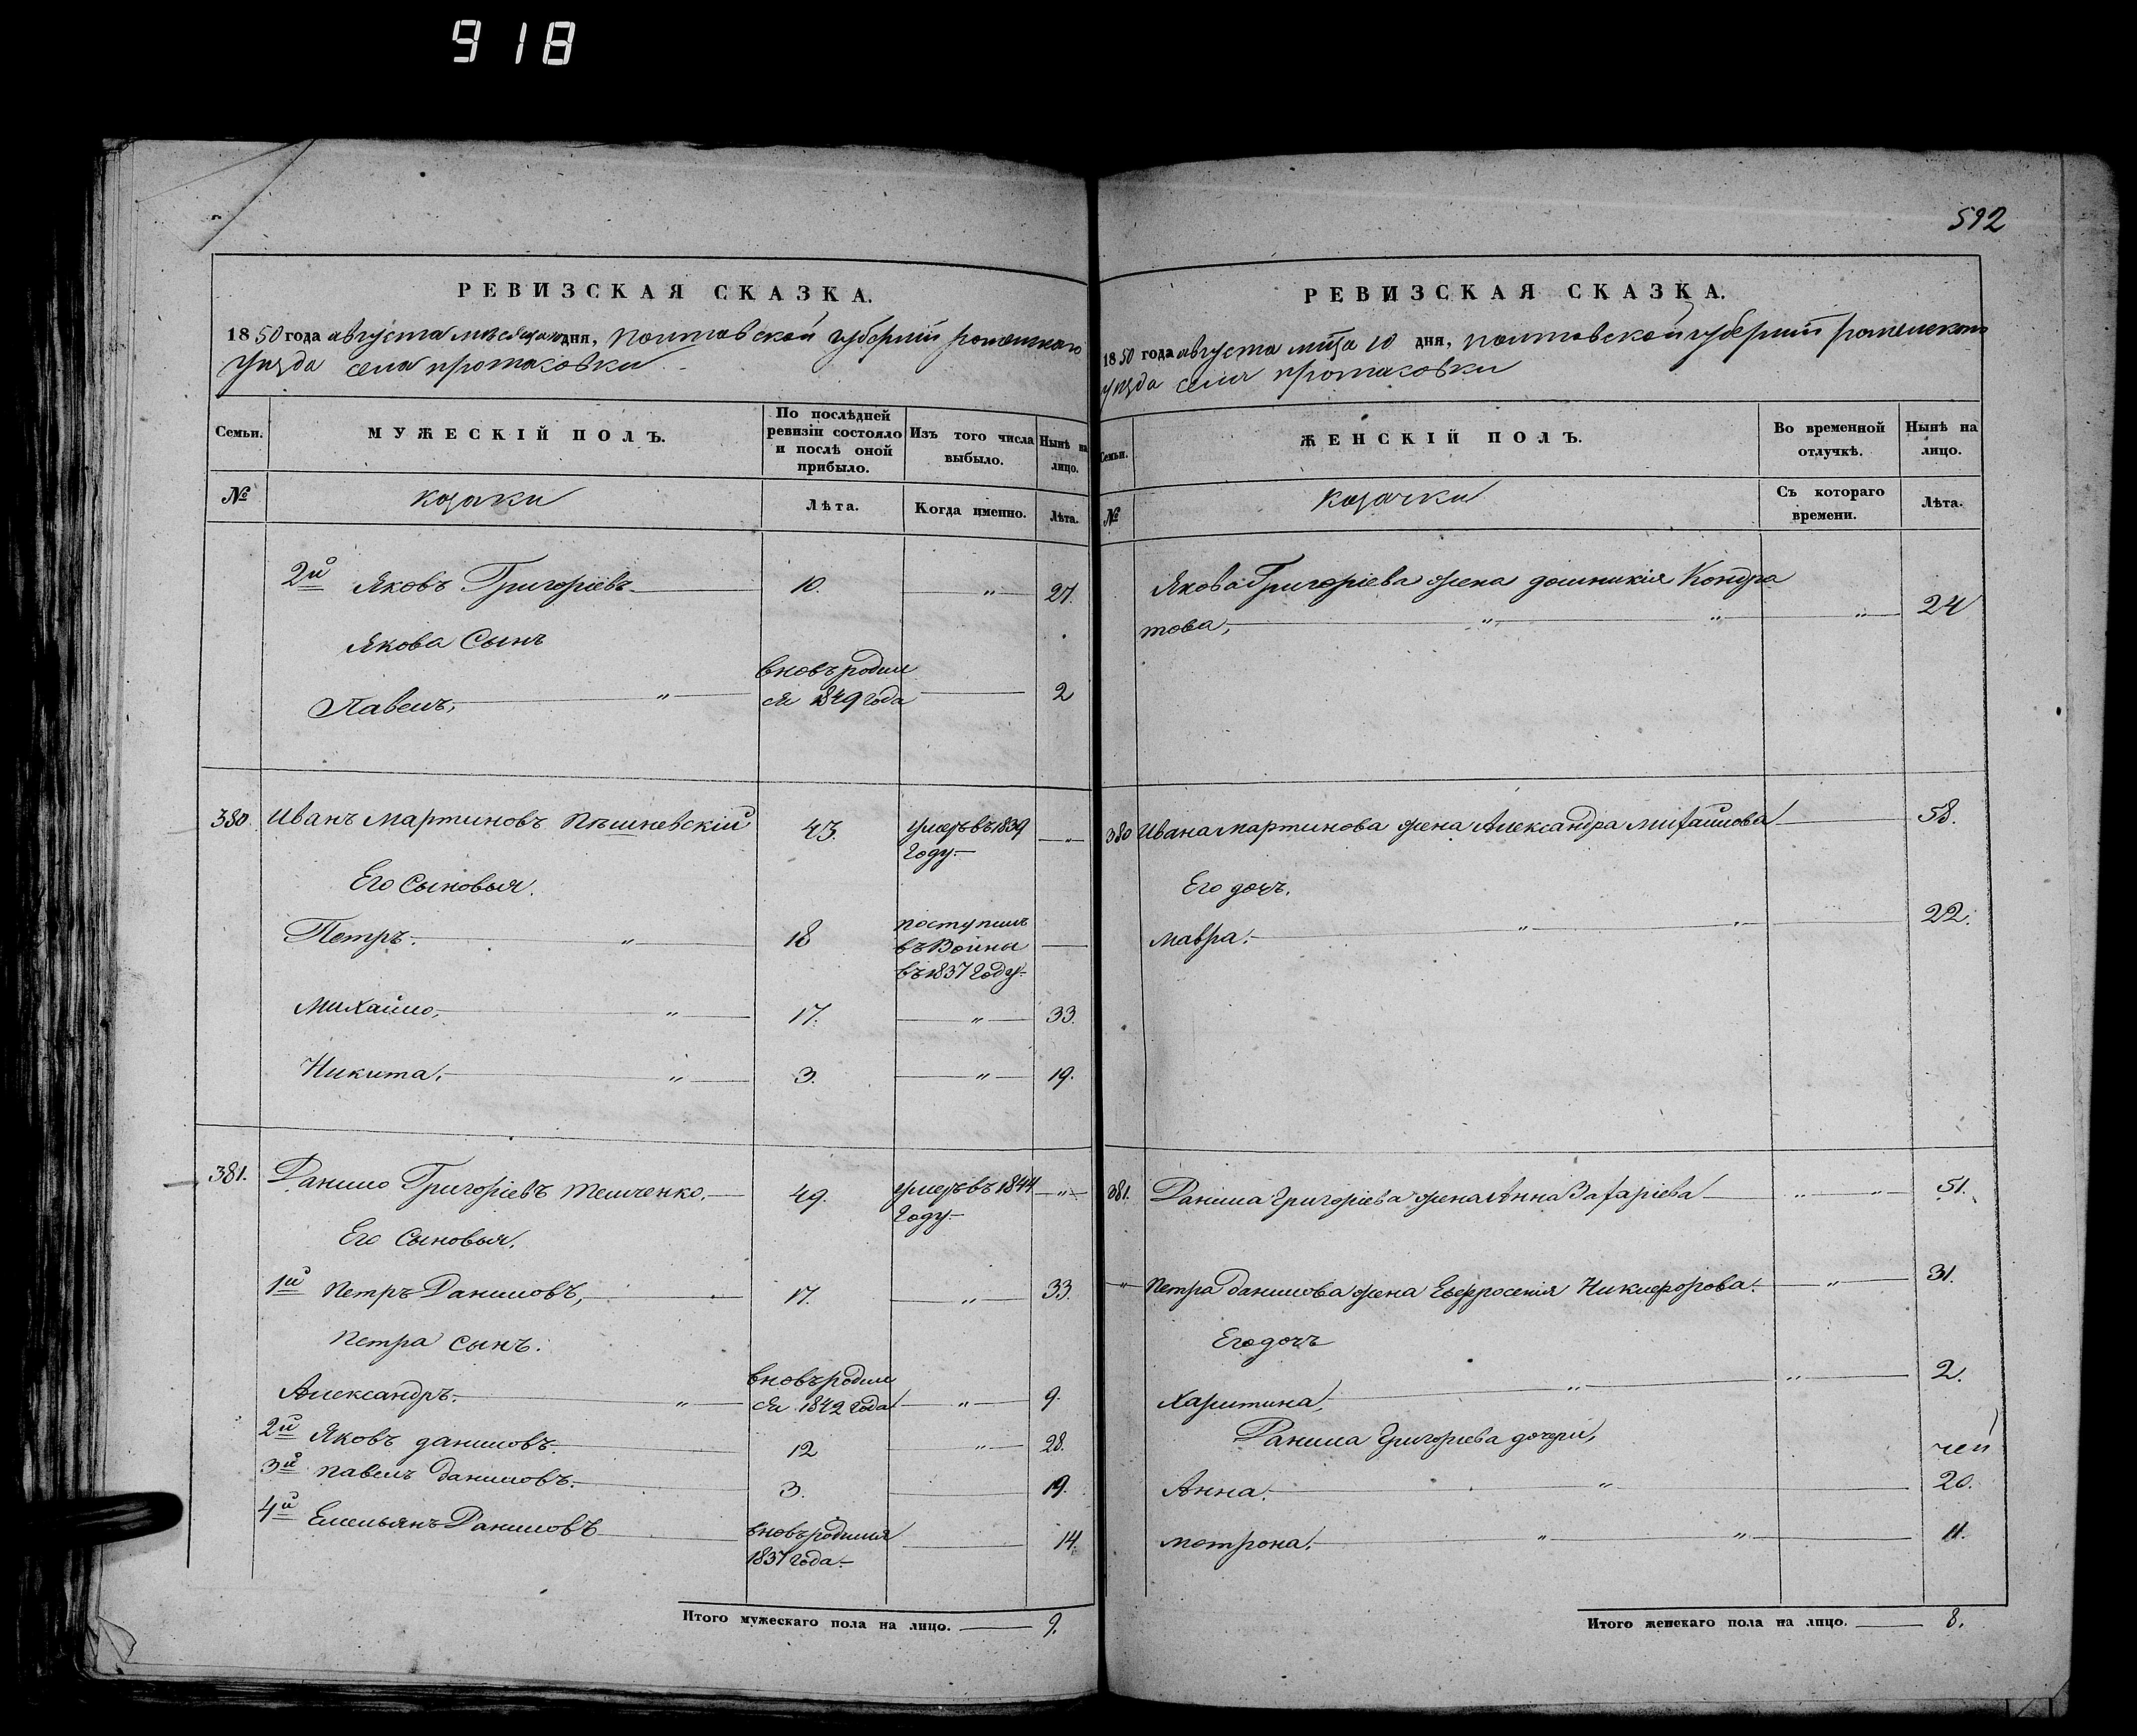 918
592
РЕВИЗСКАЯ СКАЗКА.
1850 года августа месяца 10 дня, Полтавской губернiи роменскаго
уезда села протасовки
Семьи. МУЖЕСКIЙ ПОЛЪ. По послѣдней ревизiи состояло и послѣ оной прибыло. Изъ того числа выбыло. Нынѣ на лицо.
№ козаки Лѣта. Когда именно. Лѣта.
2й Яковъ Григорiевъ 10. " 27.
Якова Сынъ
Павелъ, " вновь родил
ся 1849 года 2
380. Иванъ Мартиновъ 43. умеръ въ 1839 "
Году.
Его Сыновья.
Петръ. " 18 поступилъ
въ Воины
въ 1837 Году
Михайло, " 17. " 33.
Никита, " 3. " 19.
381. Данило Григорiевъ 49. умеръ въ 1844 "
Году
Его Сыновья,
1й Петръ Даниловъ, 17. " 33.
Петра сынъ.
Александръ. " вновь родил
ся 1842 года " 9.
2й Яковъ даниловъ. 12 " 28.
3й павелъ даниловъ. 3. 19.
4й Емельянъ Даниловъ вновь родился 14.
1837 года.
Итого мужескаго пола на лицо. 9.
РЕВИЗСКАЯ СКАЗКА.
1850 года августа мца 10 дня, полтавской губернiи роменскаго
уезда села протасовки
Семьи. ЖЕНСКIЙ ПОЛЪ. Во временной отлучкѣ. Нынѣ на лицо.
№ козачки Съ котораго времени. Лѣта.
Якова Григорiева жена домникiя Кондра
това, " " " 24
380 Ивана мартинова жена Александра михайлова 58.
Его дочъ,
мавра. " " 22.
381. Данила григорiева жена Анна Захарiева " " 51.
" Петра данилова жена Евфросенiя Никифорова. " 31.
Его дочъ
Харитина, " " 2.
Данила григорiева дочери,
Анна. " 20.
мотрона. " " 11.
Итого женскаго пола на лицо. 8.